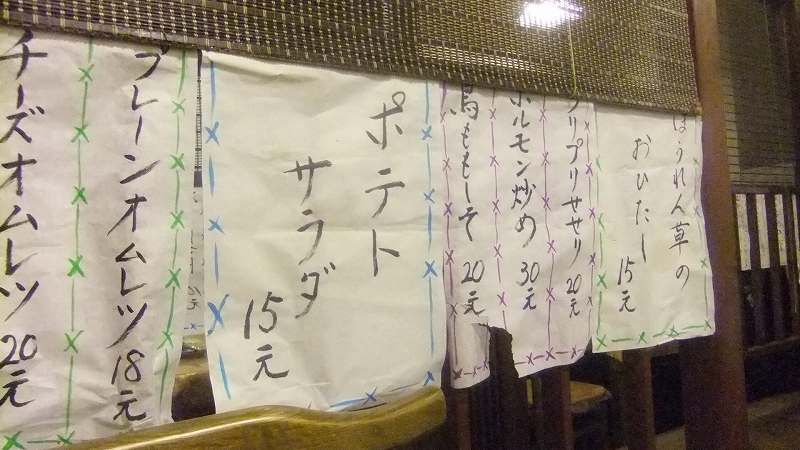 ほうれん草の
おひたし
15元
プリプリササリ 20元
ホルモン炒め 30元
鳥ももしそ 20元
ポテト
サラダ
15元
プレーンオムレツ 18元
チーズオムレツ 20元